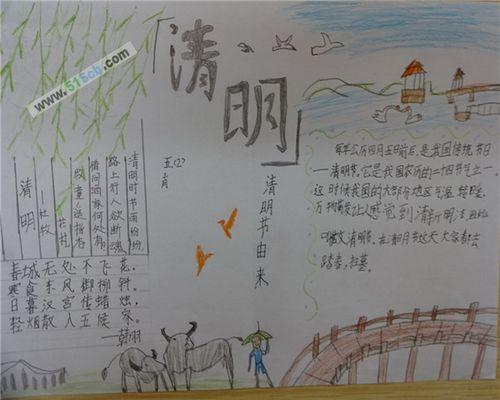 「清明」
www.515cb.com
五(2)
肖
清明
杜牧
清明时节雨纷纷,
路上行人欲断魂
借问酒家何处有,
牧童遥指杏花村。
春城无处不飞花,
寒食东风御柳斜。
日暮汉宫传蜡烛,
轻烟散入五侯家。
——韩翃
清明节由来
每年公历四月五日前后,是我国传统节日
——清明节,它是我国农历的二十四节气之一
这时候我国的大部分地区气温转暖,
万物萌发让人感觉到清新明洁,因此
叫做清明节。在清明节这天大家都去
踏青,扫墓。